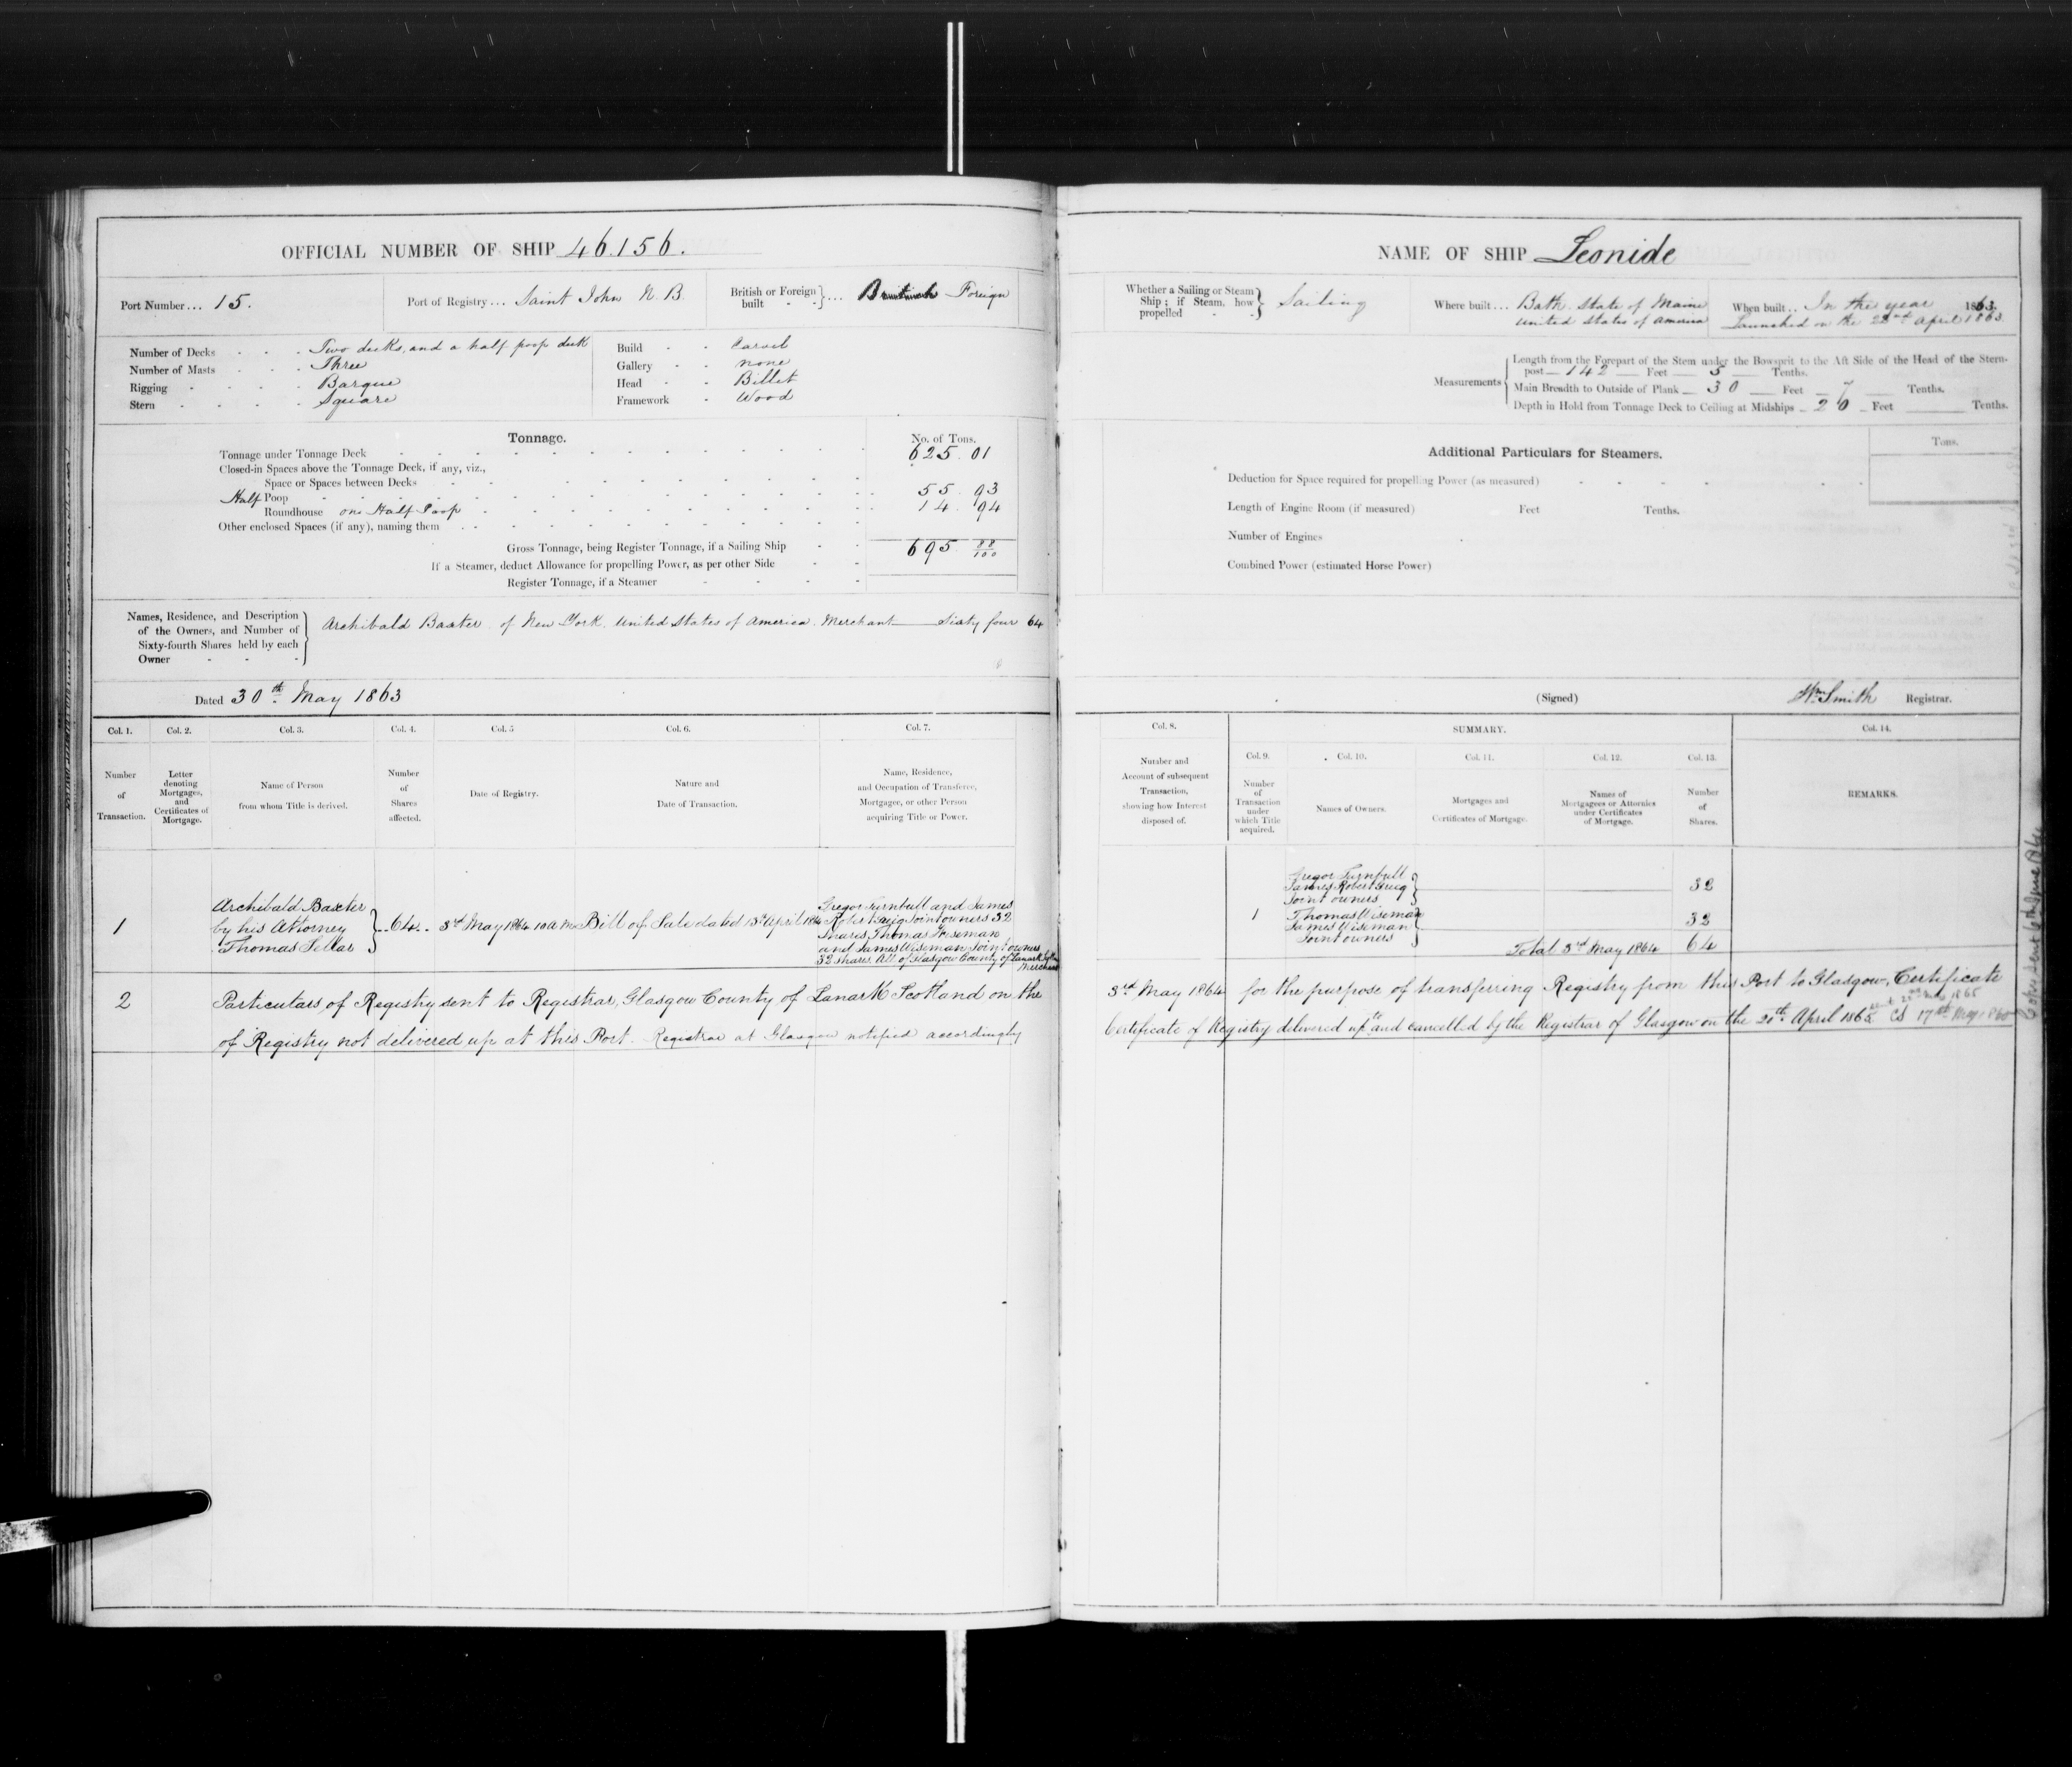 OFFICIAL NUMBER OF SHIP 46.156.
Port Number... 15.
Port of Registry... Saint John N. B.
British or Foreign built } ... British Foreign
Number of Decks - - - Two decks, and a half poop deck
Number of Masts - - - Three
Rigging - - - - Barque
Stern - - - - Square
Build - - Carvel
Gallery - - none
Head - - Billet
Framework - Wood
Tonnage.
No. of Tons.
Tonnage under Tonnage Deck 625. 01
Closed-in Spaces above the Tonnage Deck, if any, viz.,
Space or Spaces between Decks
Half Poop 55. 93
Roundhouse one Half Poop 14. 94
Other enclosed Spaces (if any), naming them
Gross Tonnage, being Register Tonnage, if a Sailing Ship 695 88/100
If a Steamer, deduct Allowance for propelling Power, as per other Side
Register Tonnage, if a Steamer
Names, Residence, and Description
of the Owners, and Number of
Sixty-fourth Shares held by each
Owner
Archibald Baxter of New York. United States of America. Merchant Sixty four 64
Dated 30th May 1863
Col. 1. Col. 2. Col. 3. Col. 4. Col. 5 Col. 6. Col. 7.
Number of Transaction.
Letter denoting Mortgages, and Certificates of Mortgage.
Name of Person from whom Title is derived.
Number of Shares affected.
Date of Registry.
Nature and Date of Transaction.
Name, Residence, and Occupation of Transferee, Mortgagee, or other Person acquiring Title or Power.
1
Archibald Baxter
by his Attorney
Thomas Sellar
64
3rd May 1864 10 a m
Bill of Sale dated 13th April 1864
Gregor Turnbull and James
Robert Greig Joint owners 32
Shares, Thomas Wiseman
and James Wiseman Joint owners
32 shares. All of Glasgow County of Lanark
Merchants
2
Particulars of Registry sent to Registrar, Glasgow County of Lanark Scotland on the
of Registry not delivered up at this Port. Registrar at Glasgow notified accordingly
NAME OF SHIP Leonide
Whether a Sailing or Steam
Ship; if Steam, how
propelled
Sailing
Where built... Bath. State of Maine
United States of America
When built.. In the year 1863.
Launched on the 22nd April 1863
Measurements
Length from the Forepart of the Stem under the Bowsprit to the Aft Side of the Head of the Stern-
post — 142 — Feet — 5 — Tenths.
Main Breadth to Outside of Plank — 30 — Feet — 7 — Tenths.
Depth in Hold from Tonnage Deck to Ceiling at Midships — 20 — Feet — Tenths.
Additional Particulars for Steamers.
Tons.
Deduction for Space required for propelling Power (as measured)
Length of Engine Room (if measured) Feet Tenths.
Number of Engines
Combined Power (estimated Horse Power)
(Signed) Wm Smith Registrar.
Col. 8.
SUMMARY.
Col. 14.
Col. 9. Col. 10. Col. 11. Col. 12. Col. 13.
Number and Account of subsequent Transaction, showing how Interest disposed of.
Number of Transaction under which Title acquired.
Names of Owners.
Mortgages and Certificates of Mortgage.
Names of Mortgagees or Attornies under Certificates of Mortgage.
Number of Shares.
REMARKS.
Gregor Turnbull
James Robert Greig
Joint owners
32
1
Thomas Wiseman
James Wiseman
Joint owners
32
Total 3rd May 1864 64
3rd May 1864 for the purpose of transferring Registry from this Port to Glasgow, Certificate
Certificate of Registry delivered up and cancelled by the Registrar of Glasgow on the 20th April 1865
CS 17th May 1865
Copy sent 6th June 1864